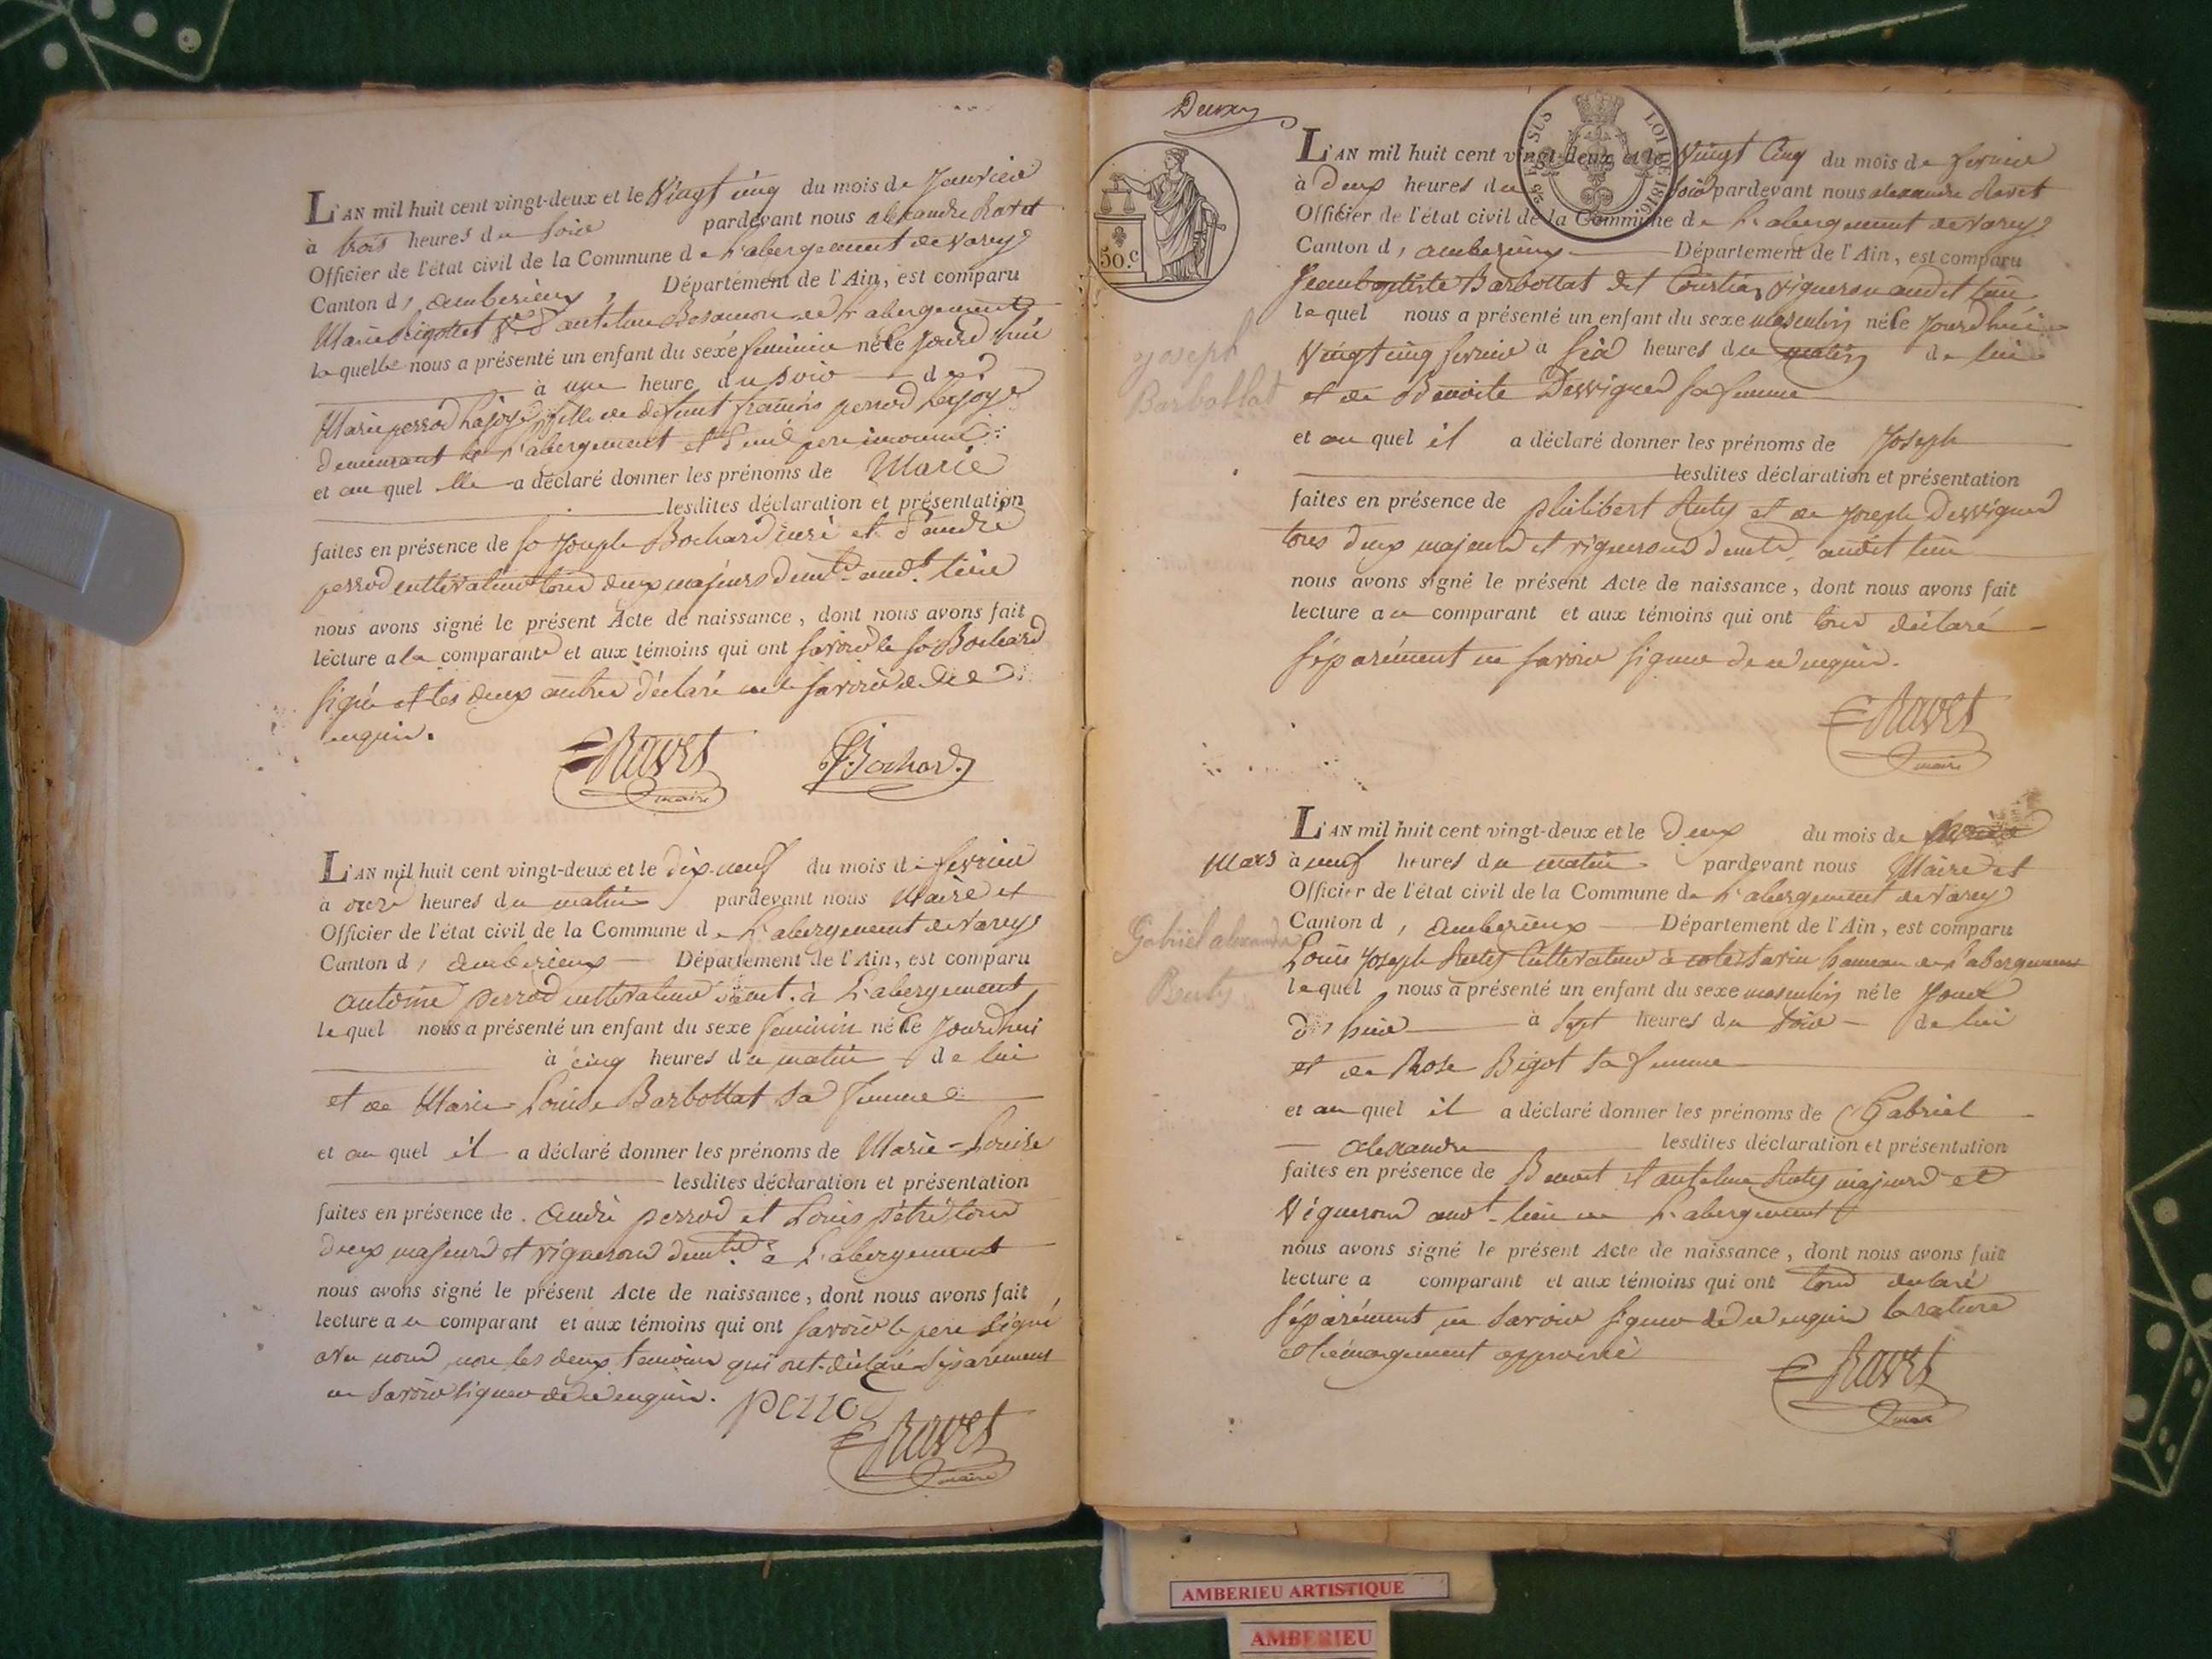 L'AN mil huit cent vingt-deux et le Vingt cinq du mois de Janvier
à trois heures du soir pardevant nous alexandre Ravet
Officier de l'état civil de la Commune de L'abergement de varey
Canton d, amberieux, Département de l'Ain, est comparu
Marie
laquelle nous a présenté un enfant du sexe feminin né le Jourd'hui
à une heure du soir de
Marie perrod fille de defunt françois perrod
demeurant L'abergement et d'un pere inconnu
et au quel elle a déclaré donner les prénoms de Marie
lesdites déclaration et présentation
faites en présence de Joseph Bochard curé et d'andré
perrod cultivateur tous deux majeurs lieu
nous avons signé le présent Acte de naissance, dont nous avons fait
lecture a la comparante et aux témoins qui ont savoir le Bochard
signé et les deux autres déclaré ne le savoir de ce
enquis.
Ravet
maire
Bochard
L'AN mil huit cent vingt-deux et le dix-neuf du mois de fevrier
à onze heures du matin pardevant nous Maire et
Officier de l'état civil de la Commune de L'abergement de varey
Canton d, amberieux Département de l'Ain, est comparu
antoine perrod cultivateur à L'abergement
lequel nous a présenté un enfant du sexe feminin né le Jourdhui
à cinq heures du matin de lui
et de Marie-Louise Barbollat sa femme
et au quel il a déclaré donner les prénoms de Marie-Louise
lesdites déclaration et présentation
faites en présence de andré perrod et Louis tous
deux majeurs et vignerons à L'abergement
nous avons signé le présent Acte de naissance, dont nous avons fait
lecture a u comparant et aux témoins qui ont savoir le pere signé
avec nous, non les deux temoins qui ont déclaré séparément
ne savoir signer de ce enquis.
perrod
Ravet
maire
Deux
50.c
EN SUS
LOI DE 1816
L'AN mil huit cent vingt-deux et le Vingt Cinq du mois de fevrier
à deux heures du soir pardevant nous alexandre Ravet
Officier de l'état civil de la Commune de L'abergement de varey
Canton d, amberieux Département de l'Ain, est comparu
Jeanbaptiste Barbollat dit vigneron audit lieu
lequel nous a présenté un enfant du sexe masculin né le Jourdhui
Joseph
Barbollat
Vingt cinq fevrier à six heures du matin de lui
et de Benoite Dessignes sa femme
et au quel il a déclaré donner les prénoms de Joseph
lesdites déclaration et présentation
faites en présence de philibert Ruty et de Joseph Dessignes
tous deux majeurs et vignerons audit lieu
nous avons signé le présent Acte de naissance, dont nous avons fait
lecture a u comparant et aux témoins qui ont tous déclaré
séparément ne savoir signer de ce enquis.
Ravet
maire
L'AN mil huit cent vingt-deux et le Deux du mois de
Mars à neuf heures du matin pardevant nous Maire et
Officier de l'état civil de la Commune de L'abergement de varey
Gabriel alexandre
Canton d, amberieux Département de l'Ain, est comparu
Louis Joseph Ruty Cultivateur à hameau de L'abergement
lequel nous a présenté un enfant du sexe masculin né le Jour
d'hier à sept heures du soir de lui
et de Rose Bigot sa femme
et au quel il a déclaré donner les prénoms de Gabriel
alexandre lesdites déclaration et présentation
faites en présence de Benoit et antelme Ruty majeurs et
Vignerons lieu de L'abergement
nous avons signé le présent Acte de naissance, dont nous avons fait
lecture a comparant et aux témoins qui ont tous déclaré
séparément ne savoir signer de ce enquis la rature
et émargement approuvé
Ravet
maire
AMBERIEU ARTISTIQUE
AMBERIEU